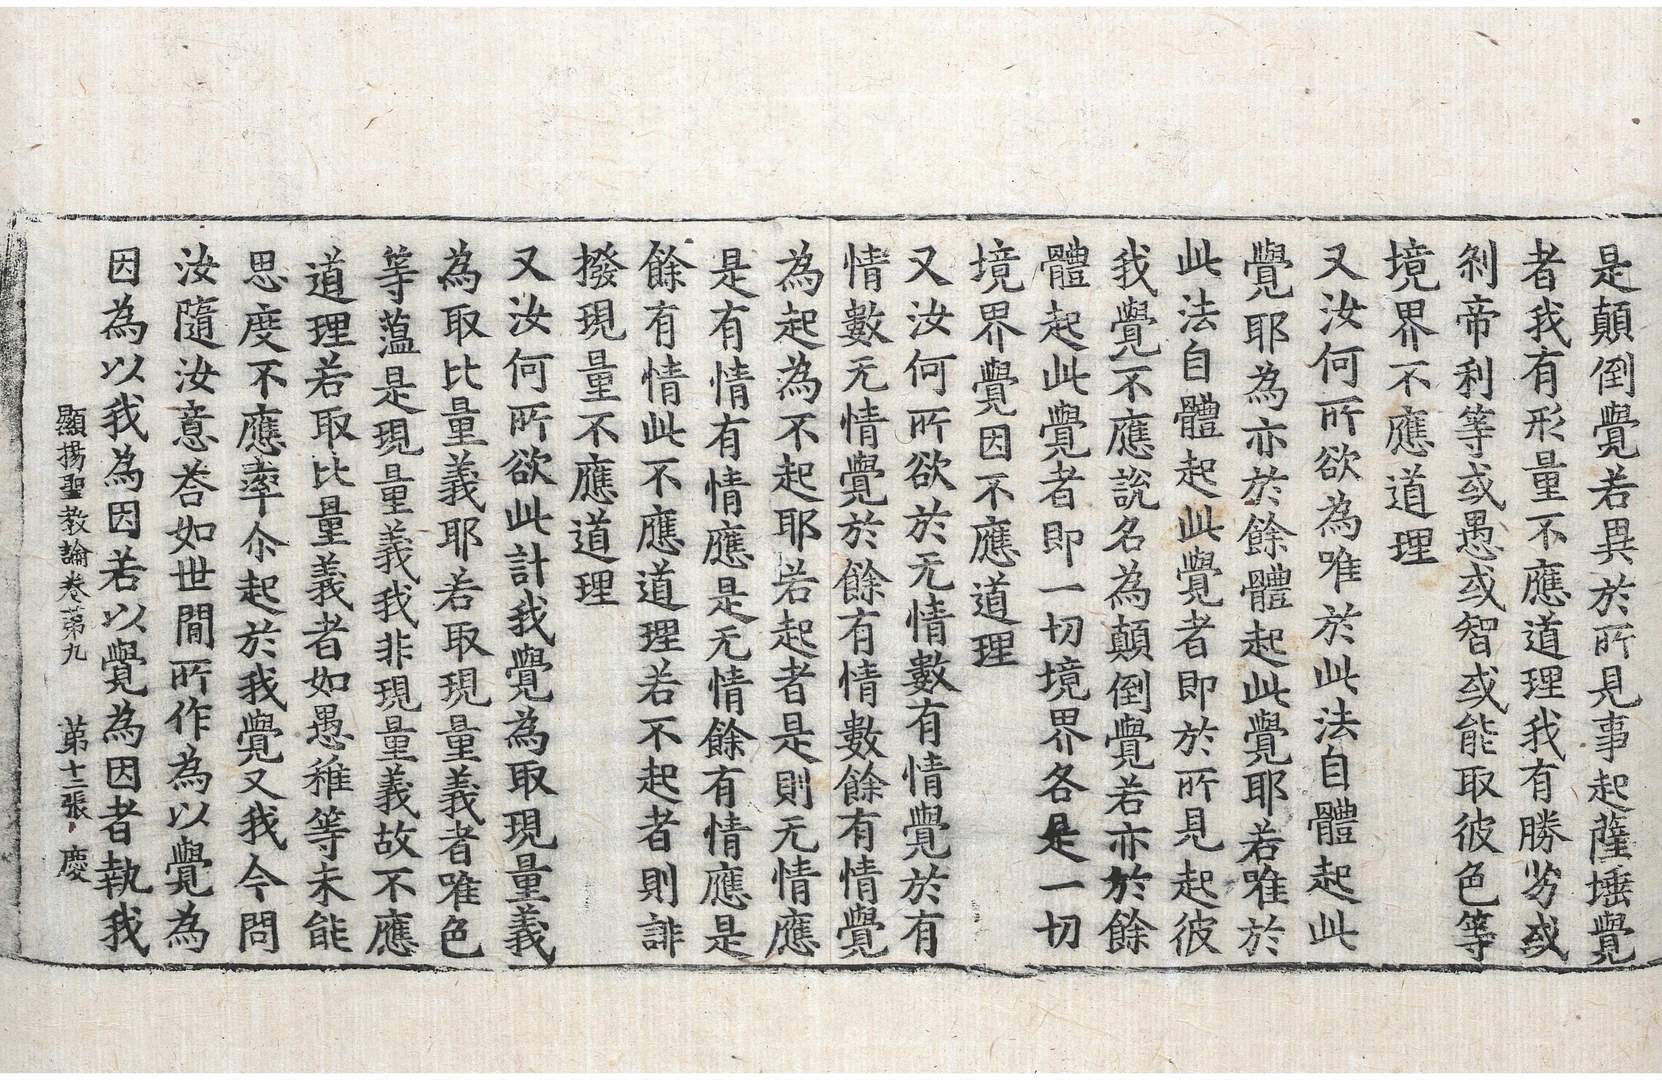 是顛倒覺若異於所見事起薩埵覺
者我有形量不應道理我有勝劣或
刹帝利等或愚或智或能取彼色等
境界不應道理
又汝何所欲為唯於此法自體起此
覺耶為亦於餘體起此覺耶若唯於
此法自體起此覺者即於所見起彼
我覺不應說名為顛倒覺若亦於餘
體起此覺者即一切境界各是一切
境界覺因不應道理
又汝何所欲於无情數有情覺於有
情數无情覺於餘有情數餘有情覺
為起為不起耶若起者是則无情應
是有情有情應是无情餘有情應是
餘有情此不應道理若不起者則誹
撥現量不應道理
又汝何所欲此計我覺為取現量義
為取比量義耶若取現量義者唯色
等蕰是現量義我非現量義故不應
道理若取比量義者如愚稚等未能
思度不應率尒起於我覺又我今問
汝隨汝意荅如世間所作為以覺為
因為以我為因若以覺為因者執我
顯揚聖教論卷苐九 苐十二張 慶